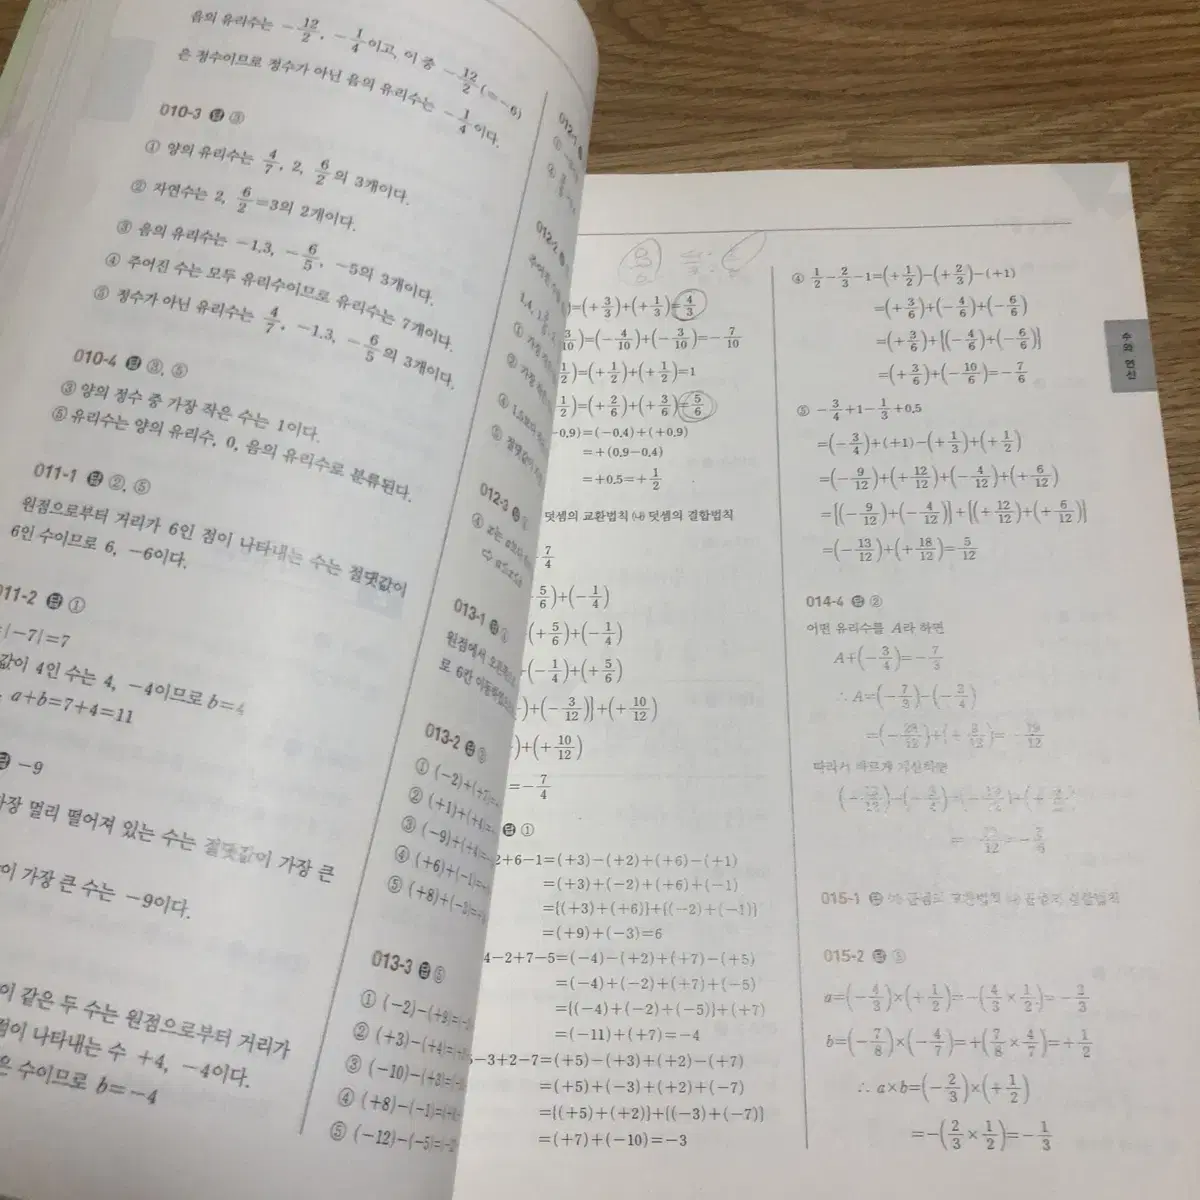 음의 유리수는 -12/2, -1/4이고, 이 중 -12/2(=-6)
은 정수이므로 정수가 아닌 음의 유리수는 -1/4이다.
010-3 답 ③
① 양의 유리수는 4/7, 2, 6/2의 3개이다.
② 자연수는 2, 6/2=3의 2개이다.
③ 음의 유리수는 -1.3, -6/5, -5의 3개이다.
④ 주어진 수는 모두 유리수이므로 유리수는 7개이다.
⑤ 정수가 아닌 유리수는 4/7, -1.3, -6/5의 3개이다.
010-4 답 ③, ⑤
③ 양의 정수 중 가장 작은 수는 1이다.
⑤ 유리수는 양의 유리수, 0, 음의 유리수로 분류된다.
011-1 답 ②, ⑤
원점으로부터 거리가 6인 점이 나타내는 수는 절댓값이
6인 수이므로 6, -6이다.
011-2 답 ①
|-7|=7
값이 4인 수는 4, -4이므로 b=4
a+b=7+4=11
답 -9
가장 멀리 떨어져 있는 수는 절댓값이 가장 큰
이 가장 큰 수는 -9이다.
이 같은 두 수는 원점으로부터 거리가
점이 나타내는 수 +4, -4이다.
은 수이므로 b=-4
012-1
012-2
① 가장
② 가장
012-3
⇨ a≤x≤b
013-1 답
원점에서 오른쪽으로
로 6칸 이동
013-2 답
① (-2)+(+
② (+1)+(+4)=
③ (-9)+(+4)=
④ (+6)+(-1)=
⑤ (+8)+(-3)=
013-3 답 ⑤
① (-2)-(+9)=
② (+3)-(+4)=
③ (-10)-(+3)=
④ (+8)-(-1)=
⑤ (-12)-(-5)=
)=(+3/3)+(+1/3)=4/3
3/10)=(-4/10)+(-3/10)=-7/10
1/2)=(+1/2)+(+1/2)=1
1/2)=(+2/6)+(+3/6)=5/6
-0.9)=(-0.4)+(+0.9)
=+(0.9-0.4)
=+0.5=+1/2
덧셈의 교환법칙 ㈏ 덧셈의 결합법칙
7/4
5/6)+(-1/4)
(+5/6)+(-1/4)
(-1/4)+(+5/6)
)+(-3/12)}+(+10/12)
)+(+10/12)
=-7/4
답 ①
2+6-1=(+3)-(+2)+(+6)-(+1)
=(+3)+(-2)+(+6)+(-1)
={(+3)+(+6)}+{(-2)+(-1)}
=(+9)+(-3)=6
4-2+7-5=(-4)-(+2)+(+7)-(+5)
=(-4)+(-2)+(+7)+(-5)
={(-4)+(-2)+(-5)}+(+7)
=(-11)+(+7)=-4
5-3+2-7=(+5)-(+3)+(+2)-(+7)
=(+5)+(-3)+(+2)+(-7)
={(+5)+(+2)}+{(-3)+(-7)}
=(+7)+(-10)=-3
④ 1/2-2/3-1=(+1/2)-(+2/3)-(+1)
=(+3/6)+(-4/6)+(-6/6)
=(+3/6)+{(-4/6)+(-6/6)}
=(+3/6)+(-10/6)=-7/6
⑤ -3/4+1-1/3+0.5
=(-3/4)+(+1)-(+1/3)+(+1/2)
=(-9/12)+(+12/12)+(-4/12)+(+6/12)
={(-9/12)+(-4/12)}+{(+12/12)+(+6/12)}
=(-13/12)+(+18/12)=5/12
014-4 답 ②
어떤 유리수를 A라 하면
A+(-3/4)=-7/3
∴ A=(-7/3)-(-3/4)
=(-28/12)+(+9/12)=-19/12
따라서 바르게 계산하면
015-1 답 ㈎ 곱셈의 교환법칙 ㈏ 곱셈의 결합법칙
015-2 답
a=(-4/3)×(+1/2)=-(4/3×1/2)=-2/3
b=(-7/8)×(-4/7)=+(7/8×4/7)=+1/2
∴ a×b=(-2/3)×(+1/2)
=-(2/3×1/2)=-1/3
수와 연산